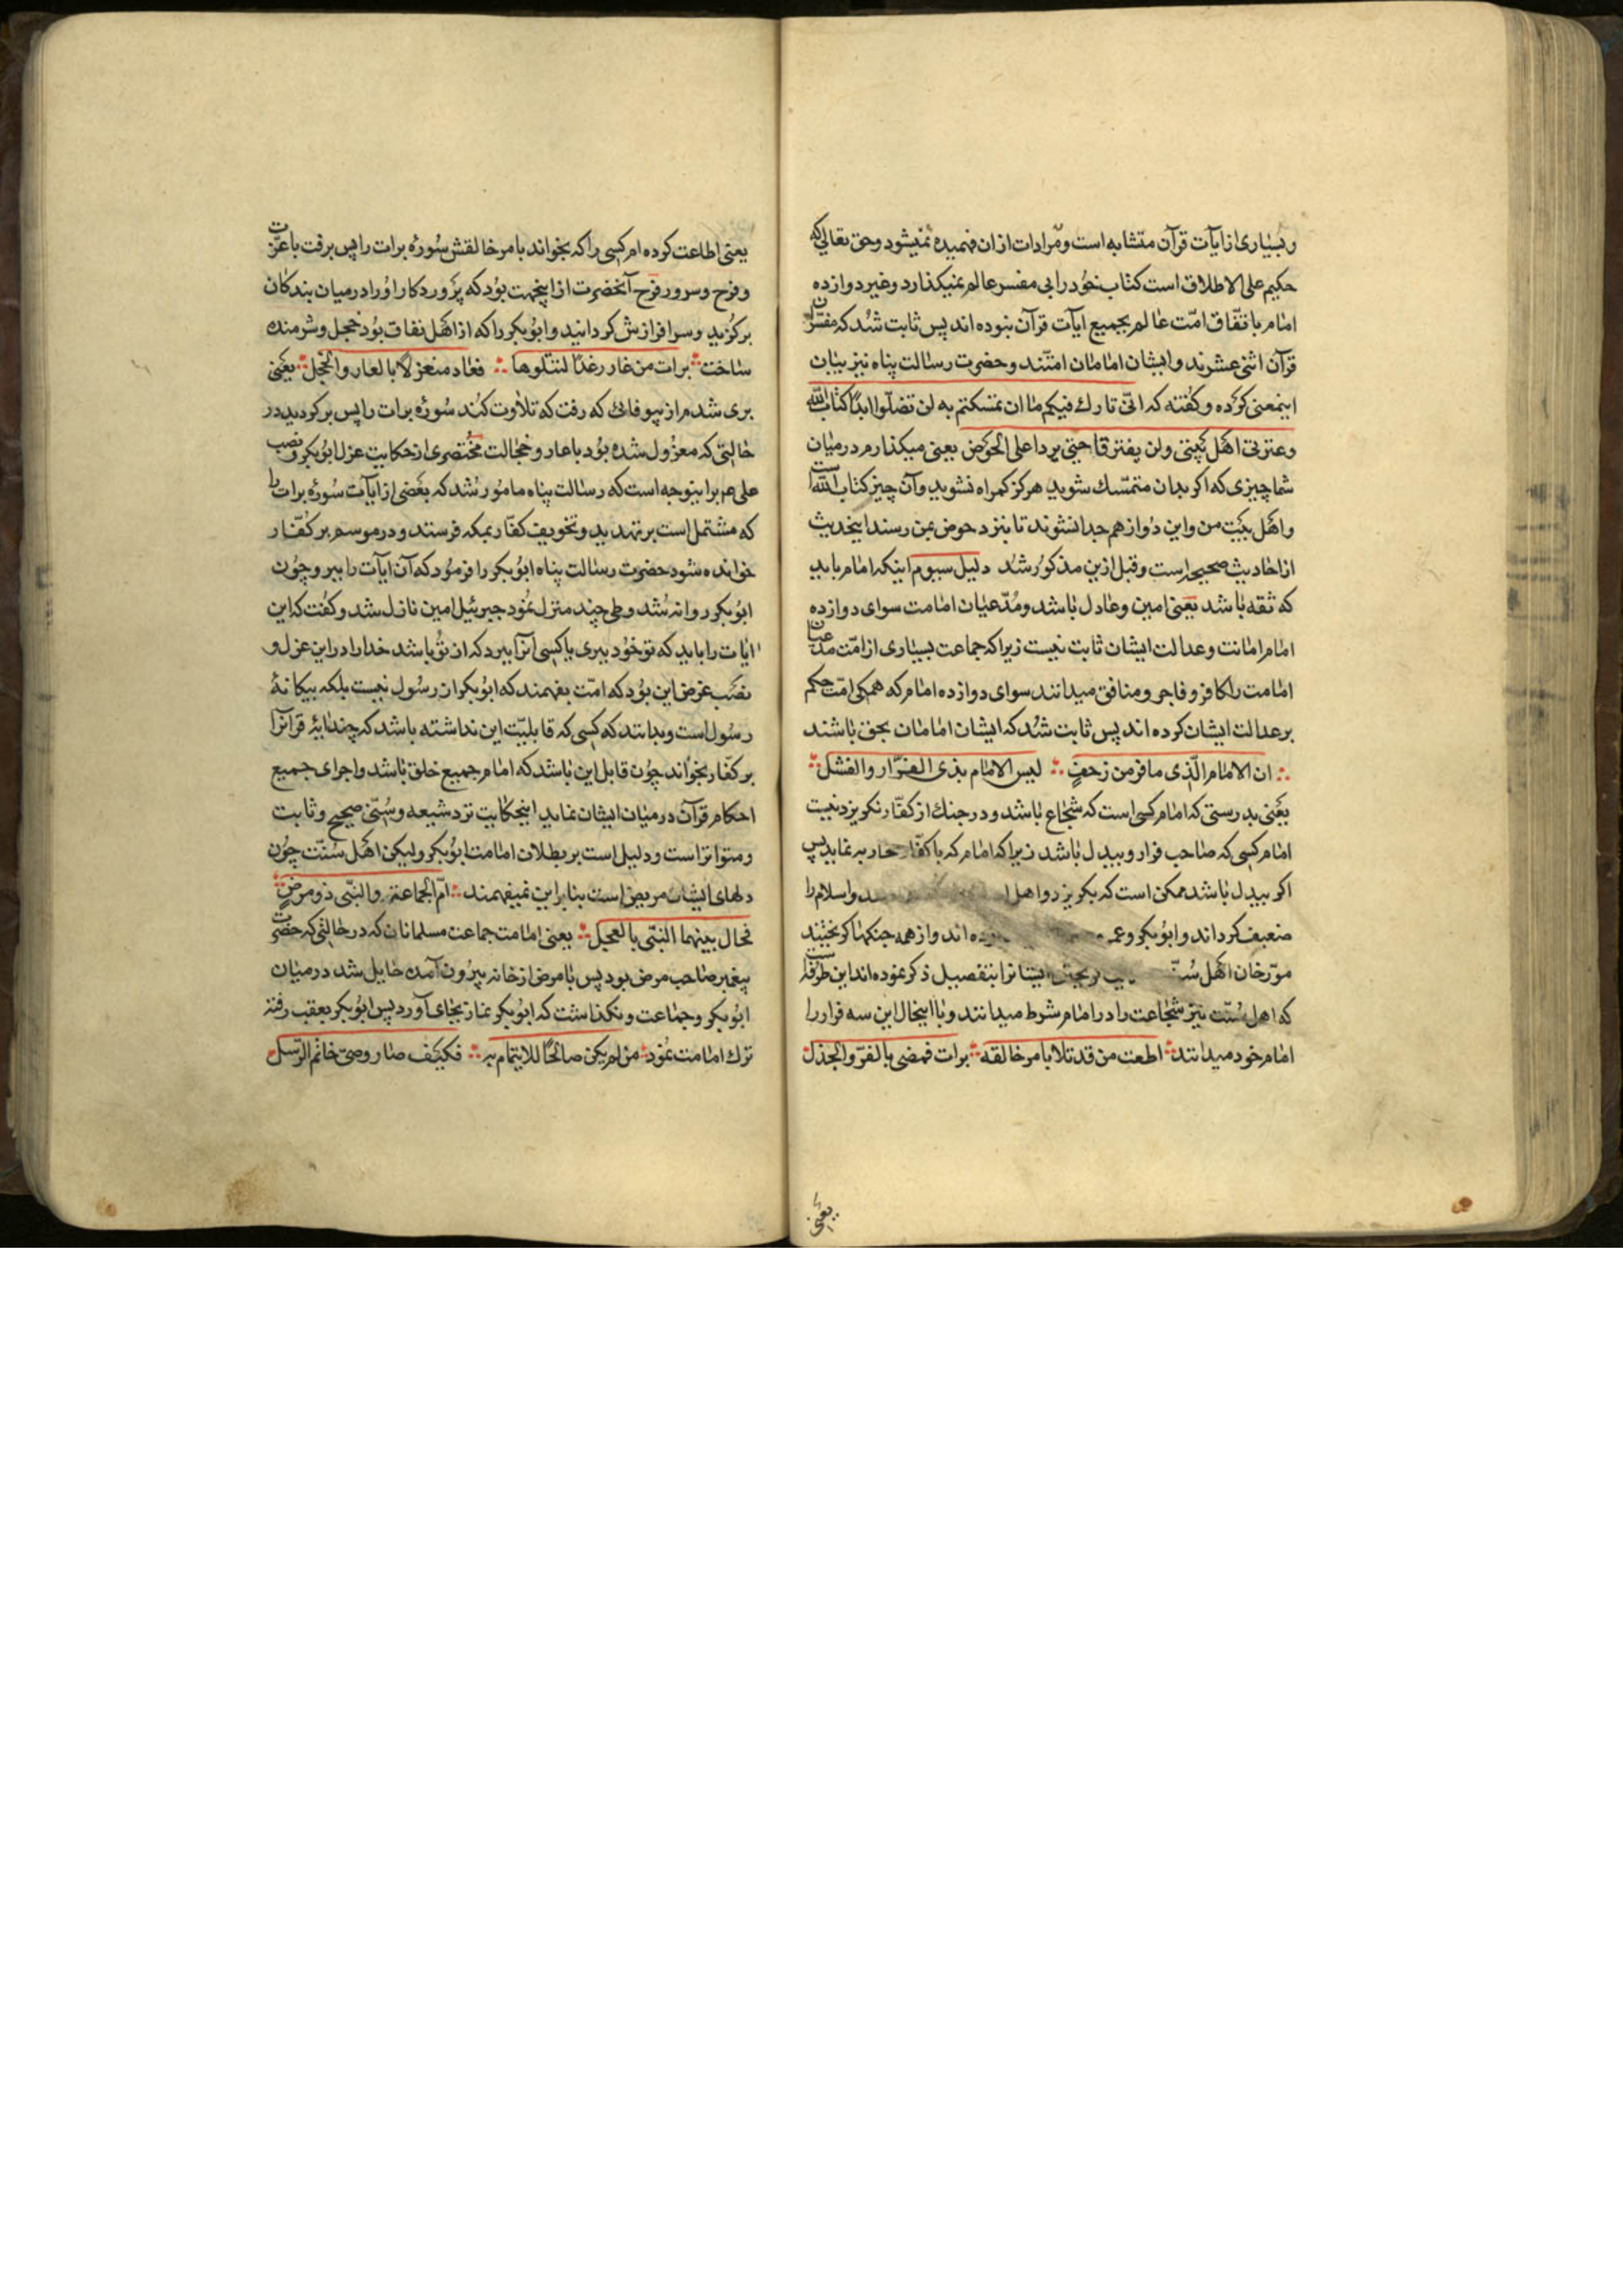 و بسیاری از ایآت قرآن متشابه است و مرادات ازان فهمیده نمیشود و حق تعالی که
حکیم علی الاطلاق است کتاب خود را بی مفسر عالم نمیکذارد و غیر دوازده
امام باتفّاق امّت عالم بجمیع ایآت قرآن نبوده اند پس ثابت شد که مفسّران
قرآن اثنی عشرند و ایشان امامان امتند و حضرت رسالت پناه نیز بیان
اینمعنی کرده و کفته که انّی تارك فیکم ما ان تمسکتم به لن تضلّوا ابدًا کتاب الله
و عترتی اهل بیتی ولن یفترقا حتی یردا علی الحوض یعنی میکذارم در میان
شما چیزی که اکر بدان متمسّك شوید هرکز کمراه نشوید و آن چیز کتاب الله است
و اهل بیت من و این دو از هم جدا نشوند تا بنزد حوض بمن رسند اینحدیث
از احادیث صحیحه است و قبل ازین مذکور شد دلیل سیوم اینکه امام باید
که ثقه باشد یعنی امین و عادل باشد و مدّعیان امامت سوای دوازده
امام امانت و عدالت ایشان ثابت نیست زیرا که جماعت بسیاری از امّت مدعیان
امامت را کافر و فاجر و منافق میدانند سوای دوازده امام که همکی امّت حکم
بر عدالت ایشان کرده اند پس ثابت شد که ایشان امامان بحق باشند
ان الامام الّذی ما فرمن زحفٍ لیس الامام بذی الفرّار والفشل
یعنی بدرستی که امام کسی است که شجاع باشد و در جنك از کفّار نکریزد نیست
امام کسی که صاحب فرار و بیدل باشد زیرا که امام که با کفّار محاربه نماید پس
اکر بیدل باشد ممکن است که بکریزد و اهل و اسلام را
ضعیف کرداند و ابوبکر و عمر بوده اند و از همه جنکها کریختند
مورّخان اهل سنّت کریختن ایشانرا بتفصیل ذکر نموده اند این طرفه است
که اهل سنّت نیز شجاعت را در امام شرط میدانند و با اینحال این سه فرار را
امام خود میدانند اطعت من قد تلا بامر خالقه برات فمضی بالفرّ والجذل
یعنی
یعنی اطاعت کرده ام کسی را که بخواند بامر خالقش سورۀ برات را پس برفت با عزّت
و فرح و سرور فرح آنحضرت از اینجهت بود که پروردکار او را در میان بندکان
برکزید و سرافرازش کردانید و ابوبکر را که از اهل نفاق بود خجل و شرمنده
ساخت برات من غار رغدًا لتتلوها فعاد منعزلا بالعار والخجل یعنی
بری شدم از بیوفائی که رفت که تلاوت کند سورۀ برات را پس برکردید در
حالتی که معزول شده بود با عار و خجالت مختصری از حکایت عزل ابوبکر و نصب
علی عم براینوجه است که رسالت پناه مامور شد که بعضی از ایآت سورۀ برات را
که مشتمل است بر تهدید و تخویف کفّار بمکه فرستد و در موسم بر کفّار
خوانده شود حضرت رسالت پناه ابوبکر را فرمود که آن ایآت را ببر و چون
ابوبکر روانه شد و طی چند منزل نمود جبرئیل امین نازل شد و کفت که این
ایات را باید که تو خود ببری یا کسی آنرا ببرد که از تو باشد خدا را در این عزل و
نصب غرض این بود که امّت بفهمند که ابوبکر از رسول نیست بلکه بیکانۀ
رسول است و بدانند که کسی که قابلیّت این نداشته باشد که چند ایۀ قرآنرا
بر کفّار بخواند چون قابل این باشد که امام جمیع خلق باشد و اجرای جمیع
احکام قرآن در میان ایشان نماید اینحکایت نزد شیعه و سنّی صحیح و ثابت
و متواتر است و دلیل است بر بطلان امامت ابوبکر ولیکن اهل سنّت چون
دلهای ایشان مریض است بنابر این نمیفهمند امّ الجماعة والنّبی ذو مرضٍ
فحال بینهما النبّی بالعجل یعنی امامت جماعت مسلمانان که در حالتی که حضرت
پیغمبر صاحب مرض بود پس با مرض از خانه بیرون آمده حایل شد در میان
ابوبکر و جماعت و نکذاشت که ابوبکر نماز بجای آورد پس ابوبکر بعقب رفته
ترك امامت نمود من لم یکن صالحًا للایتمام به فکیف صار وصیّ خاتم الرّسل